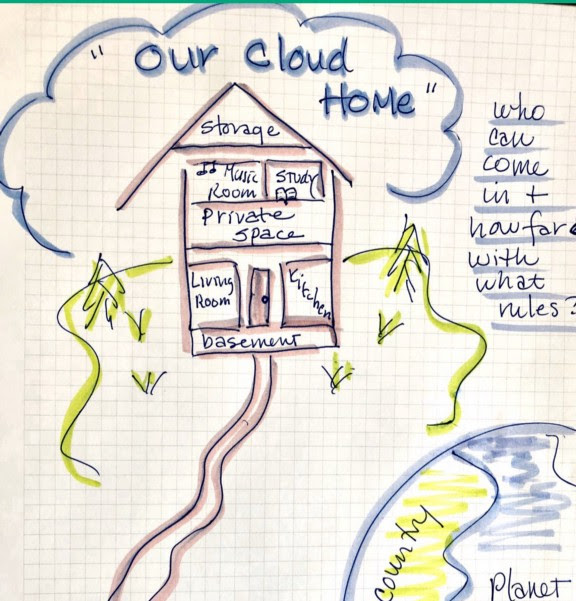 "Our Cloud
Home"
Storage
Music
Room
Study
Private
Space
Living
Room
Kitchen
basement
who
can
come
in +
how far
with
what
rules?
county
Planet